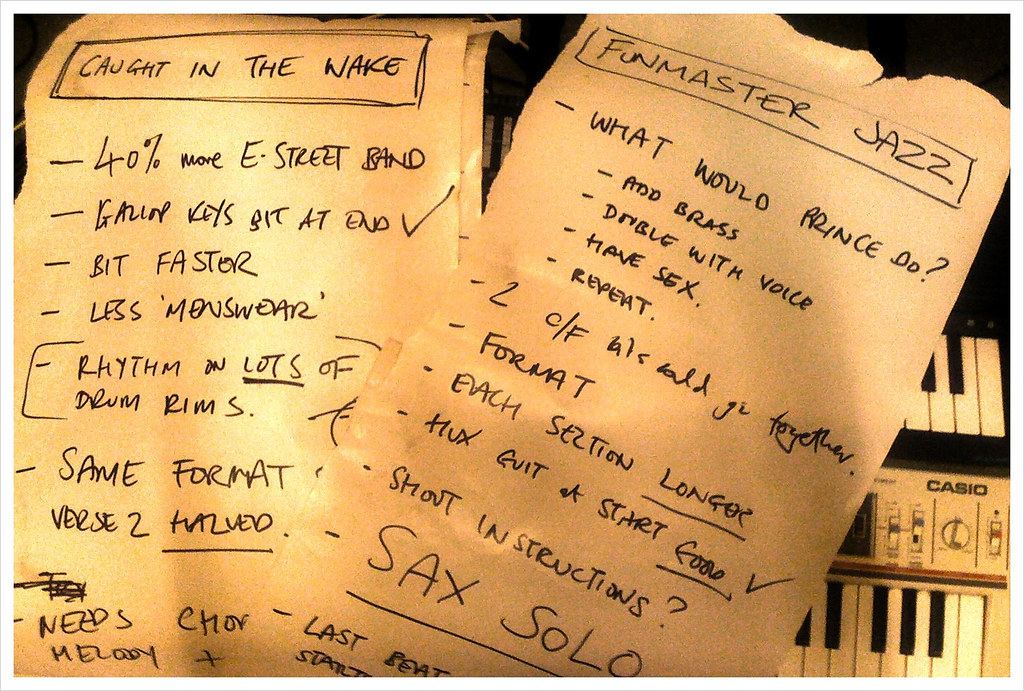 CAUGHT IN THE WAKE
- 40% more E-STREET BAND
- GALLOP KEYS BIT AT END ✓
- BIT FASTER
- LESS 'MENSWEAR'
- RHYTHM ON LOTS OF
DRUM RIMS.
- SAME FORMAT
VERSE 2 HALVED.
- NEEDS
MELODY +
FUNMASTER JAZZ
- WHAT WOULD PRINCE DO?
- ADD BRASS
- DOUBLE WITH VOICE
- HAVE SEX.
- REPEAT.
- 2 C/F bits could go together.
- FORMAT
- EACH SECTION LONGER
- HUX GUIT at START GOOD ✓
- SHOUT INSTRUCTIONS?
- SAX SOLO
- LAST BEAT
START
CASIO